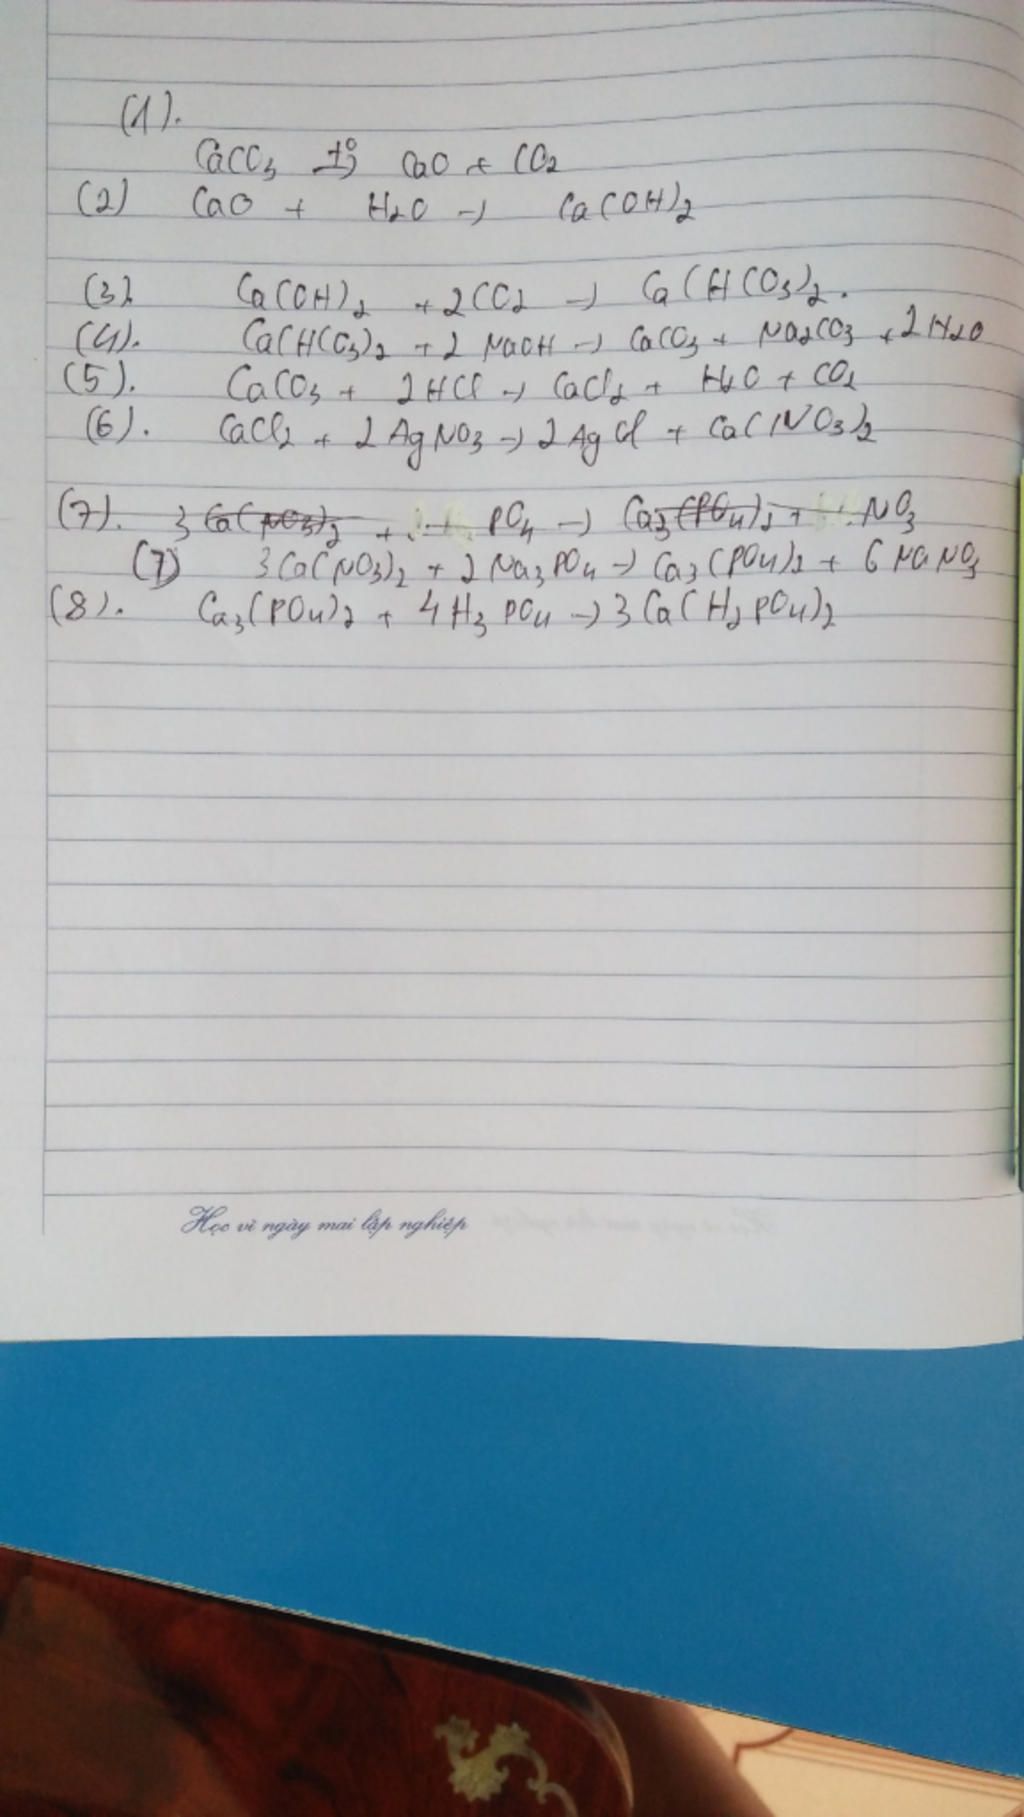 (1).
CaCO3 t°→ CaO + CO2
(2) CaO + H2O → Ca(OH)2
(3). Ca(OH)2 + 2CO2 → Ca(HCO3)2.
(4). Ca(HCO3)2 + 2 NaOH → CaCO3 + Na2CO3 + 2H2O
(5). CaCO3 + 2HCl → CaCl2 + H2O + CO2
(6). CaCl2 + 2AgNO3 → 2AgCl + Ca(NO3)2
(7). 3Ca(NO3)2 + PO4 → Ca3(PO4)2 + NO3
(7) 3Ca(NO3)2 + 2Na3PO4 → Ca3(PO4)2 + 6NaNO3
(8). Ca3(PO4)2 + 4H3PO4 → 3Ca(H2PO4)2
Học vì ngày mai lập nghiệp